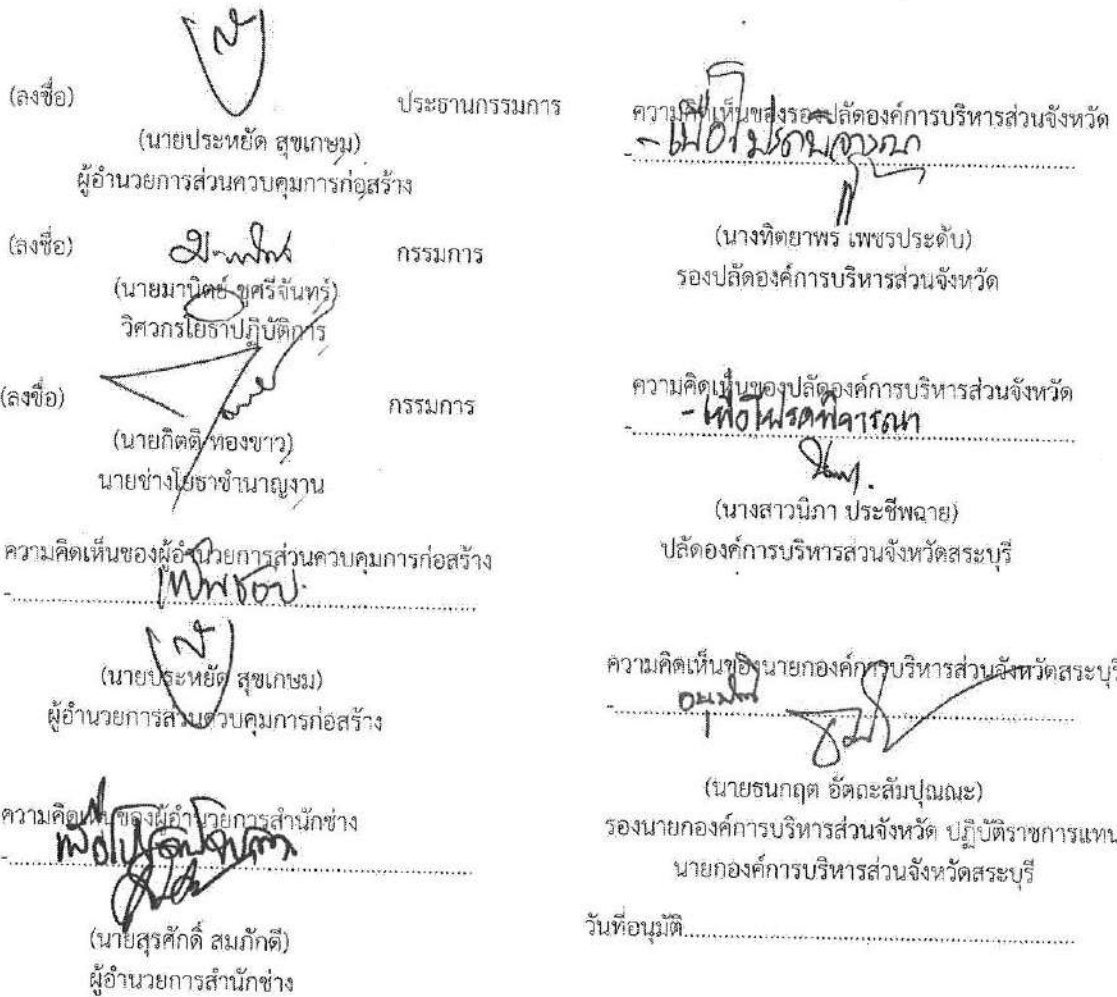 (ลงชื่อ) ประธานกรรมการ
(นายประหยัด สุขเกษม)
ผู้อำนวยการส่วนควบคุมการก่อสร้าง
(ลงชื่อ) กรรมการ
(นายมานิตย์ ชูศรีจันทร์)
วิศวกรโยธาปฏิบัติการ
(ลงชื่อ) กรรมการ
(นายกิตติ ทองขาว)
นายช่างโยธาชำนาญงาน
ความคิดเห็นของผู้อำนวยการส่วนควบคุมการก่อสร้าง
- เห็นชอบ
(นายประหยัด สุขเกษม)
ผู้อำนวยการส่วนควบคุมการก่อสร้าง
ความคิดเห็นของผู้อำนวยการสำนักช่าง
(นายสุรศักดิ์ สมภักดี)
ผู้อำนวยการสำนักช่าง
ความคิดเห็นของรองปลัดองค์การบริหารส่วนจังหวัด
- เพื่อโปรดพิจารณา
(นางทิตยาพร เพชรประดับ)
รองปลัดองค์การบริหารส่วนจังหวัด
ความคิดเห็นของปลัดองค์การบริหารส่วนจังหวัด
- เพื่อโปรดพิจารณา
(นางสาวนิภา ประชีพฉาย)
ปลัดองค์การบริหารส่วนจังหวัดสระบุรี
ความคิดเห็นของนายกองค์การบริหารส่วนจังหวัดสระบุรี
- อนุมัติ
(นายธนกฤต อัตถะสัมปุณณะ)
รองนายกองค์การบริหารส่วนจังหวัด ปฏิบัติราชการแทน
นายกองค์การบริหารส่วนจังหวัดสระบุรี
วันที่อนุมัติ